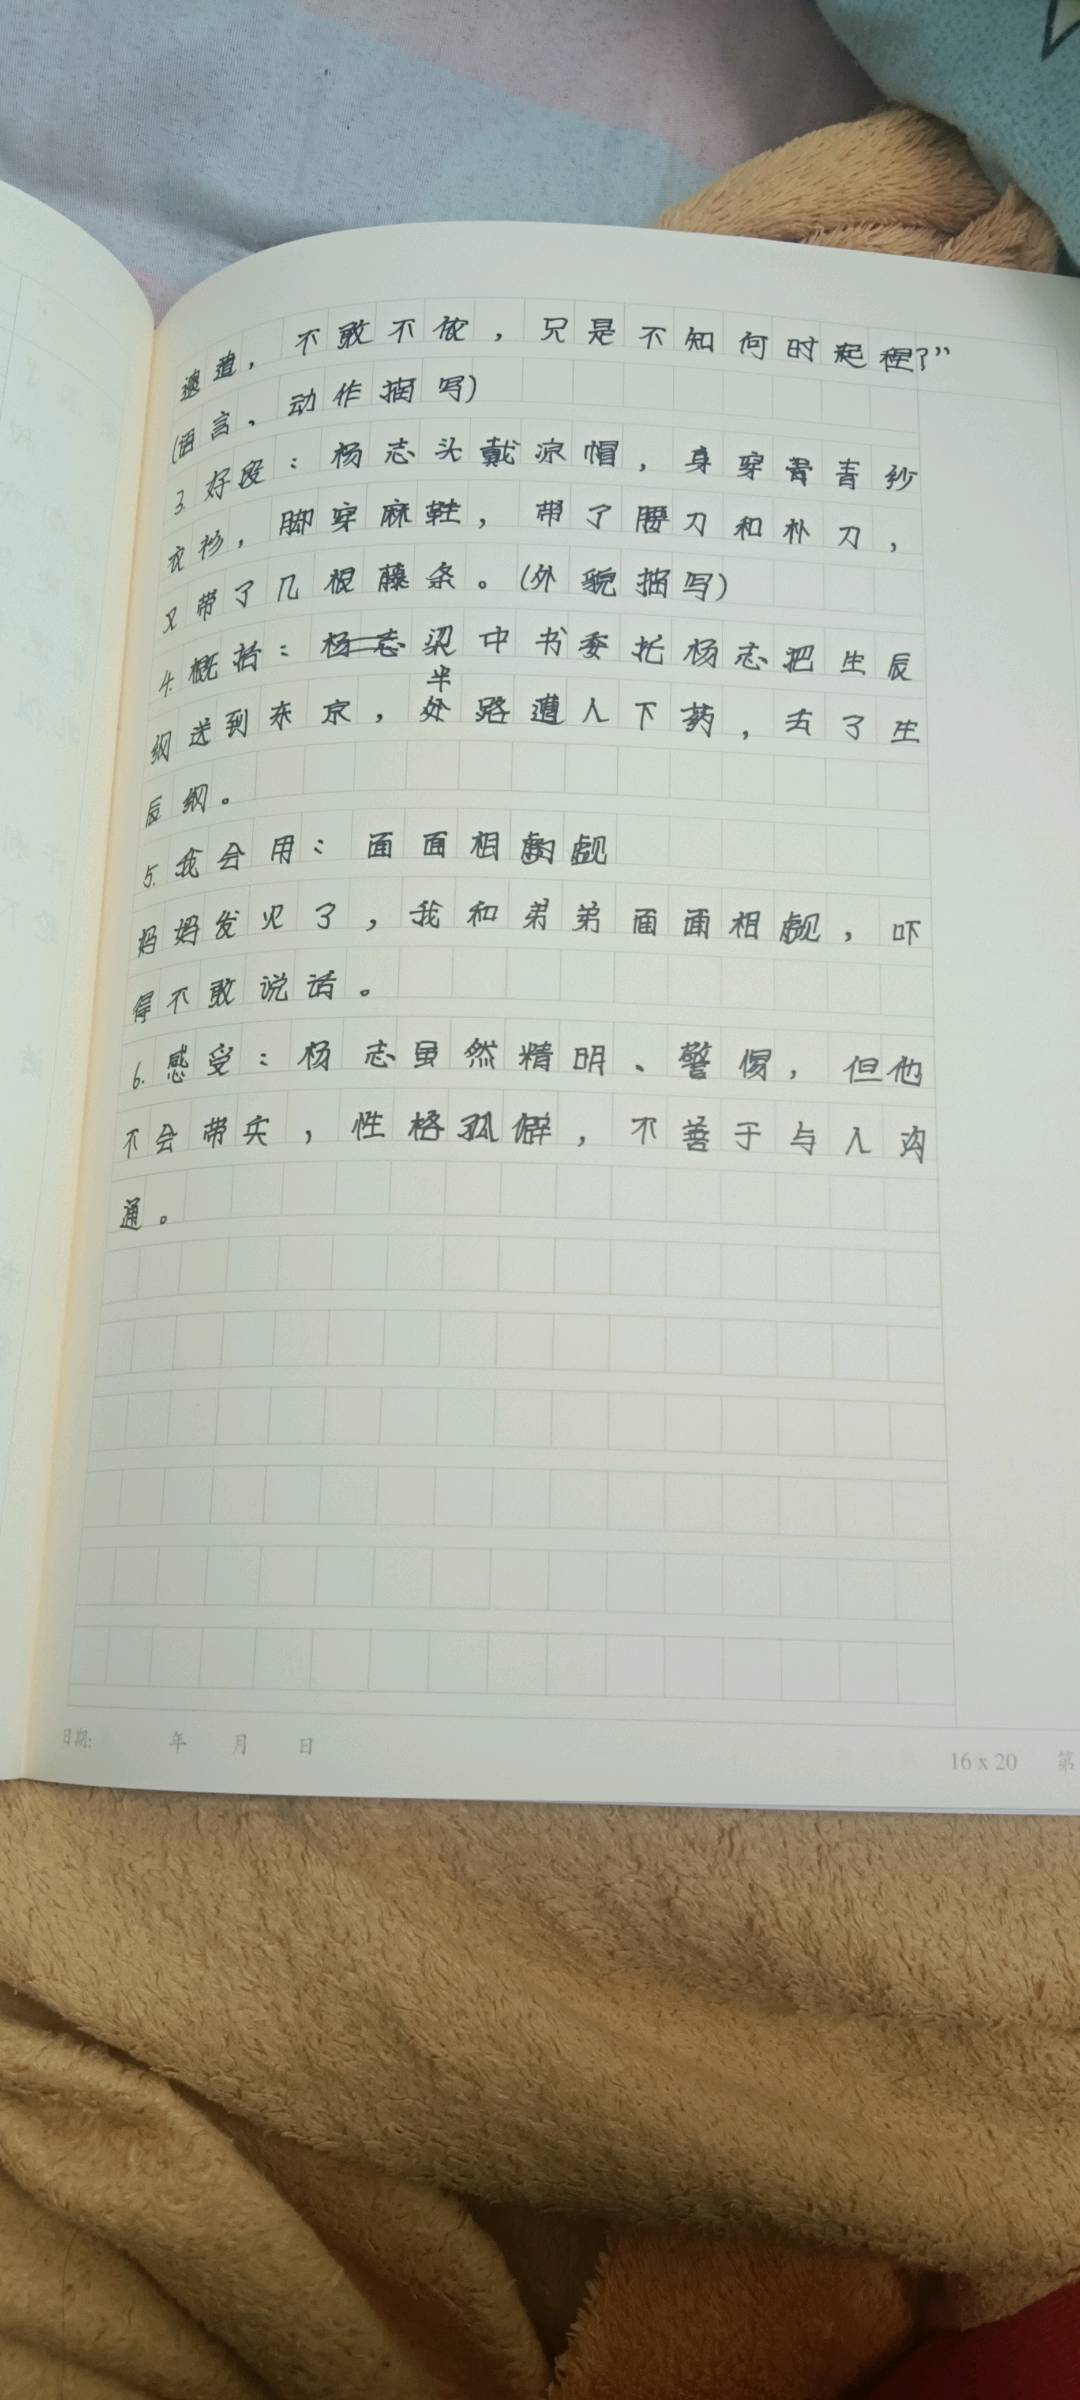 道，不敢不依，只是不知何时起程？”
(语言、动作描写)
3.好段：杨志头戴凉帽，身穿青纱
衣衫，脚穿麻鞋，带了腰刀和朴刀，
又带了几根藤条。(外貌描写)
4.概括：梁中书委托杨志把生辰
半
纲送到东京，路遭人下药，丢了生
辰纲。
5.我会用：面面相觑
妈妈发火了，我和弟弟面面相觑，吓
得不敢说话。
6.感受：杨志虽然精明、警惕，但他
不会带兵，性格孤僻，不善于与人沟
通。
日期: 年 月 日
16 x 20 第